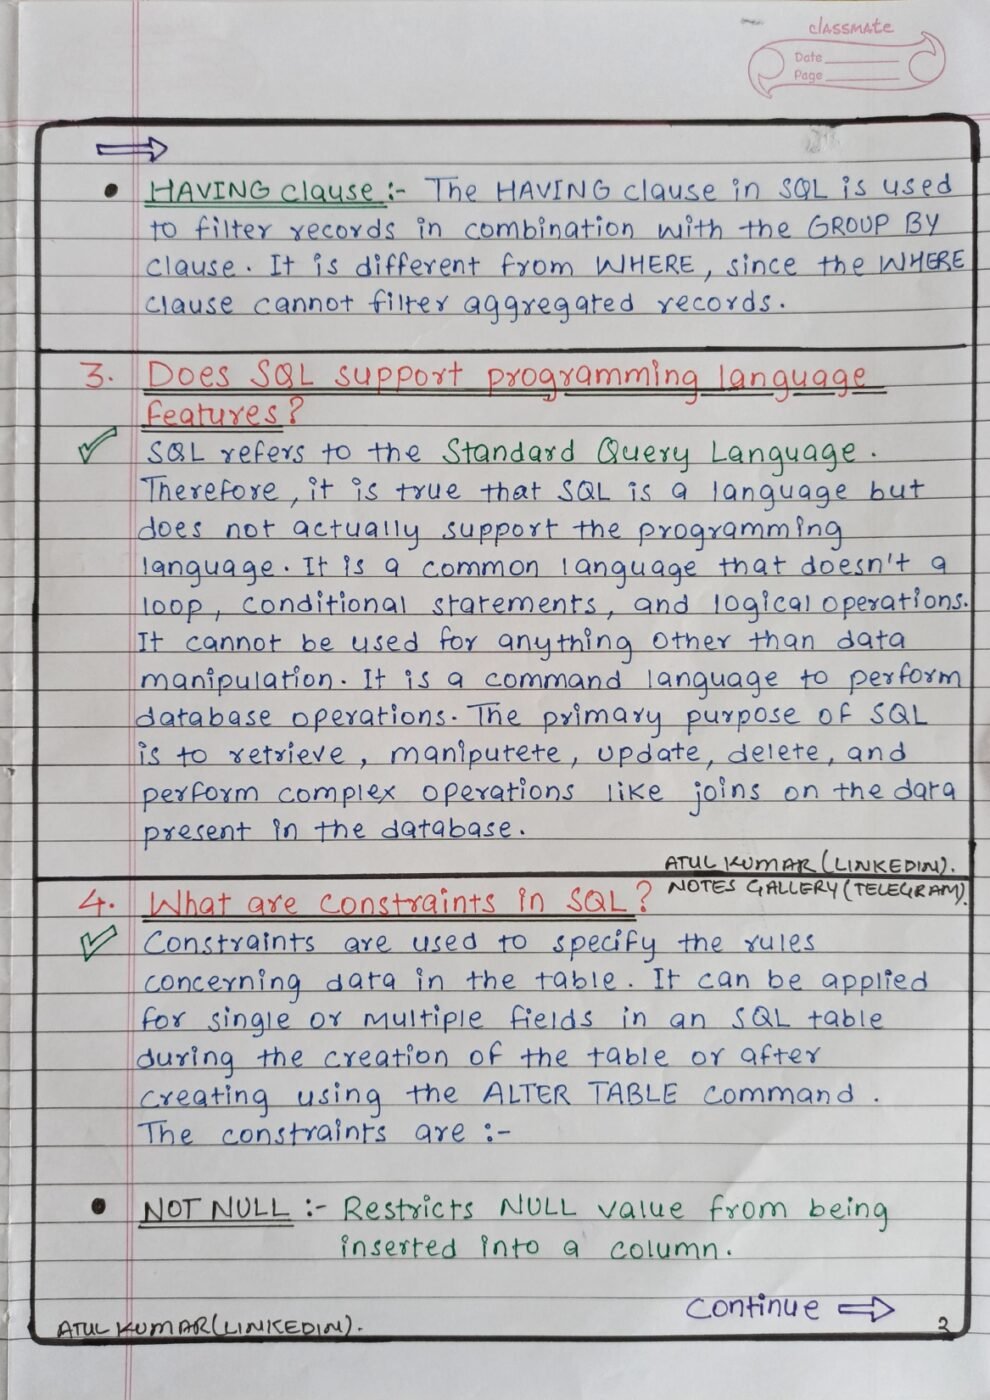 classmate
Date
Page
• HAVING Clause :- The HAVING clause in SQL is used
to filter records in combination with the GROUP BY
clause. It is different from WHERE, since the WHERE
clause cannot filter aggregated records.
3. Does SQL support programming language
features?
SQL refers to the Standard Query Language.
Therefore, it is true that SQL is a language but
does not actually support the programming
language. It is a common language that doesn't a
loop, conditional statements, and logical operations.
It cannot be used for anything other than data
manipulation. It is a command language to perform
database operations. The primary purpose of SQL
is to retrieve, maniputete, update, delete, and
perform complex operations like joins on the data
present in the database.
ATUL KUMAR (LINKEDIN).
NOTES GALLERY (TELEGRAM).
4. What are constraints in SQL?
Constraints are used to specify the rules
concerning data in the table. It can be applied
for single or multiple fields in an SQL table
during the creation of the table or after
creating using the ALTER TABLE command.
The constraints are :-
• NOT NULL :- Restricts NULL value from being
inserted into a column.
Continue ⇒
ATUL KUMAR (LINKEDIN).
2